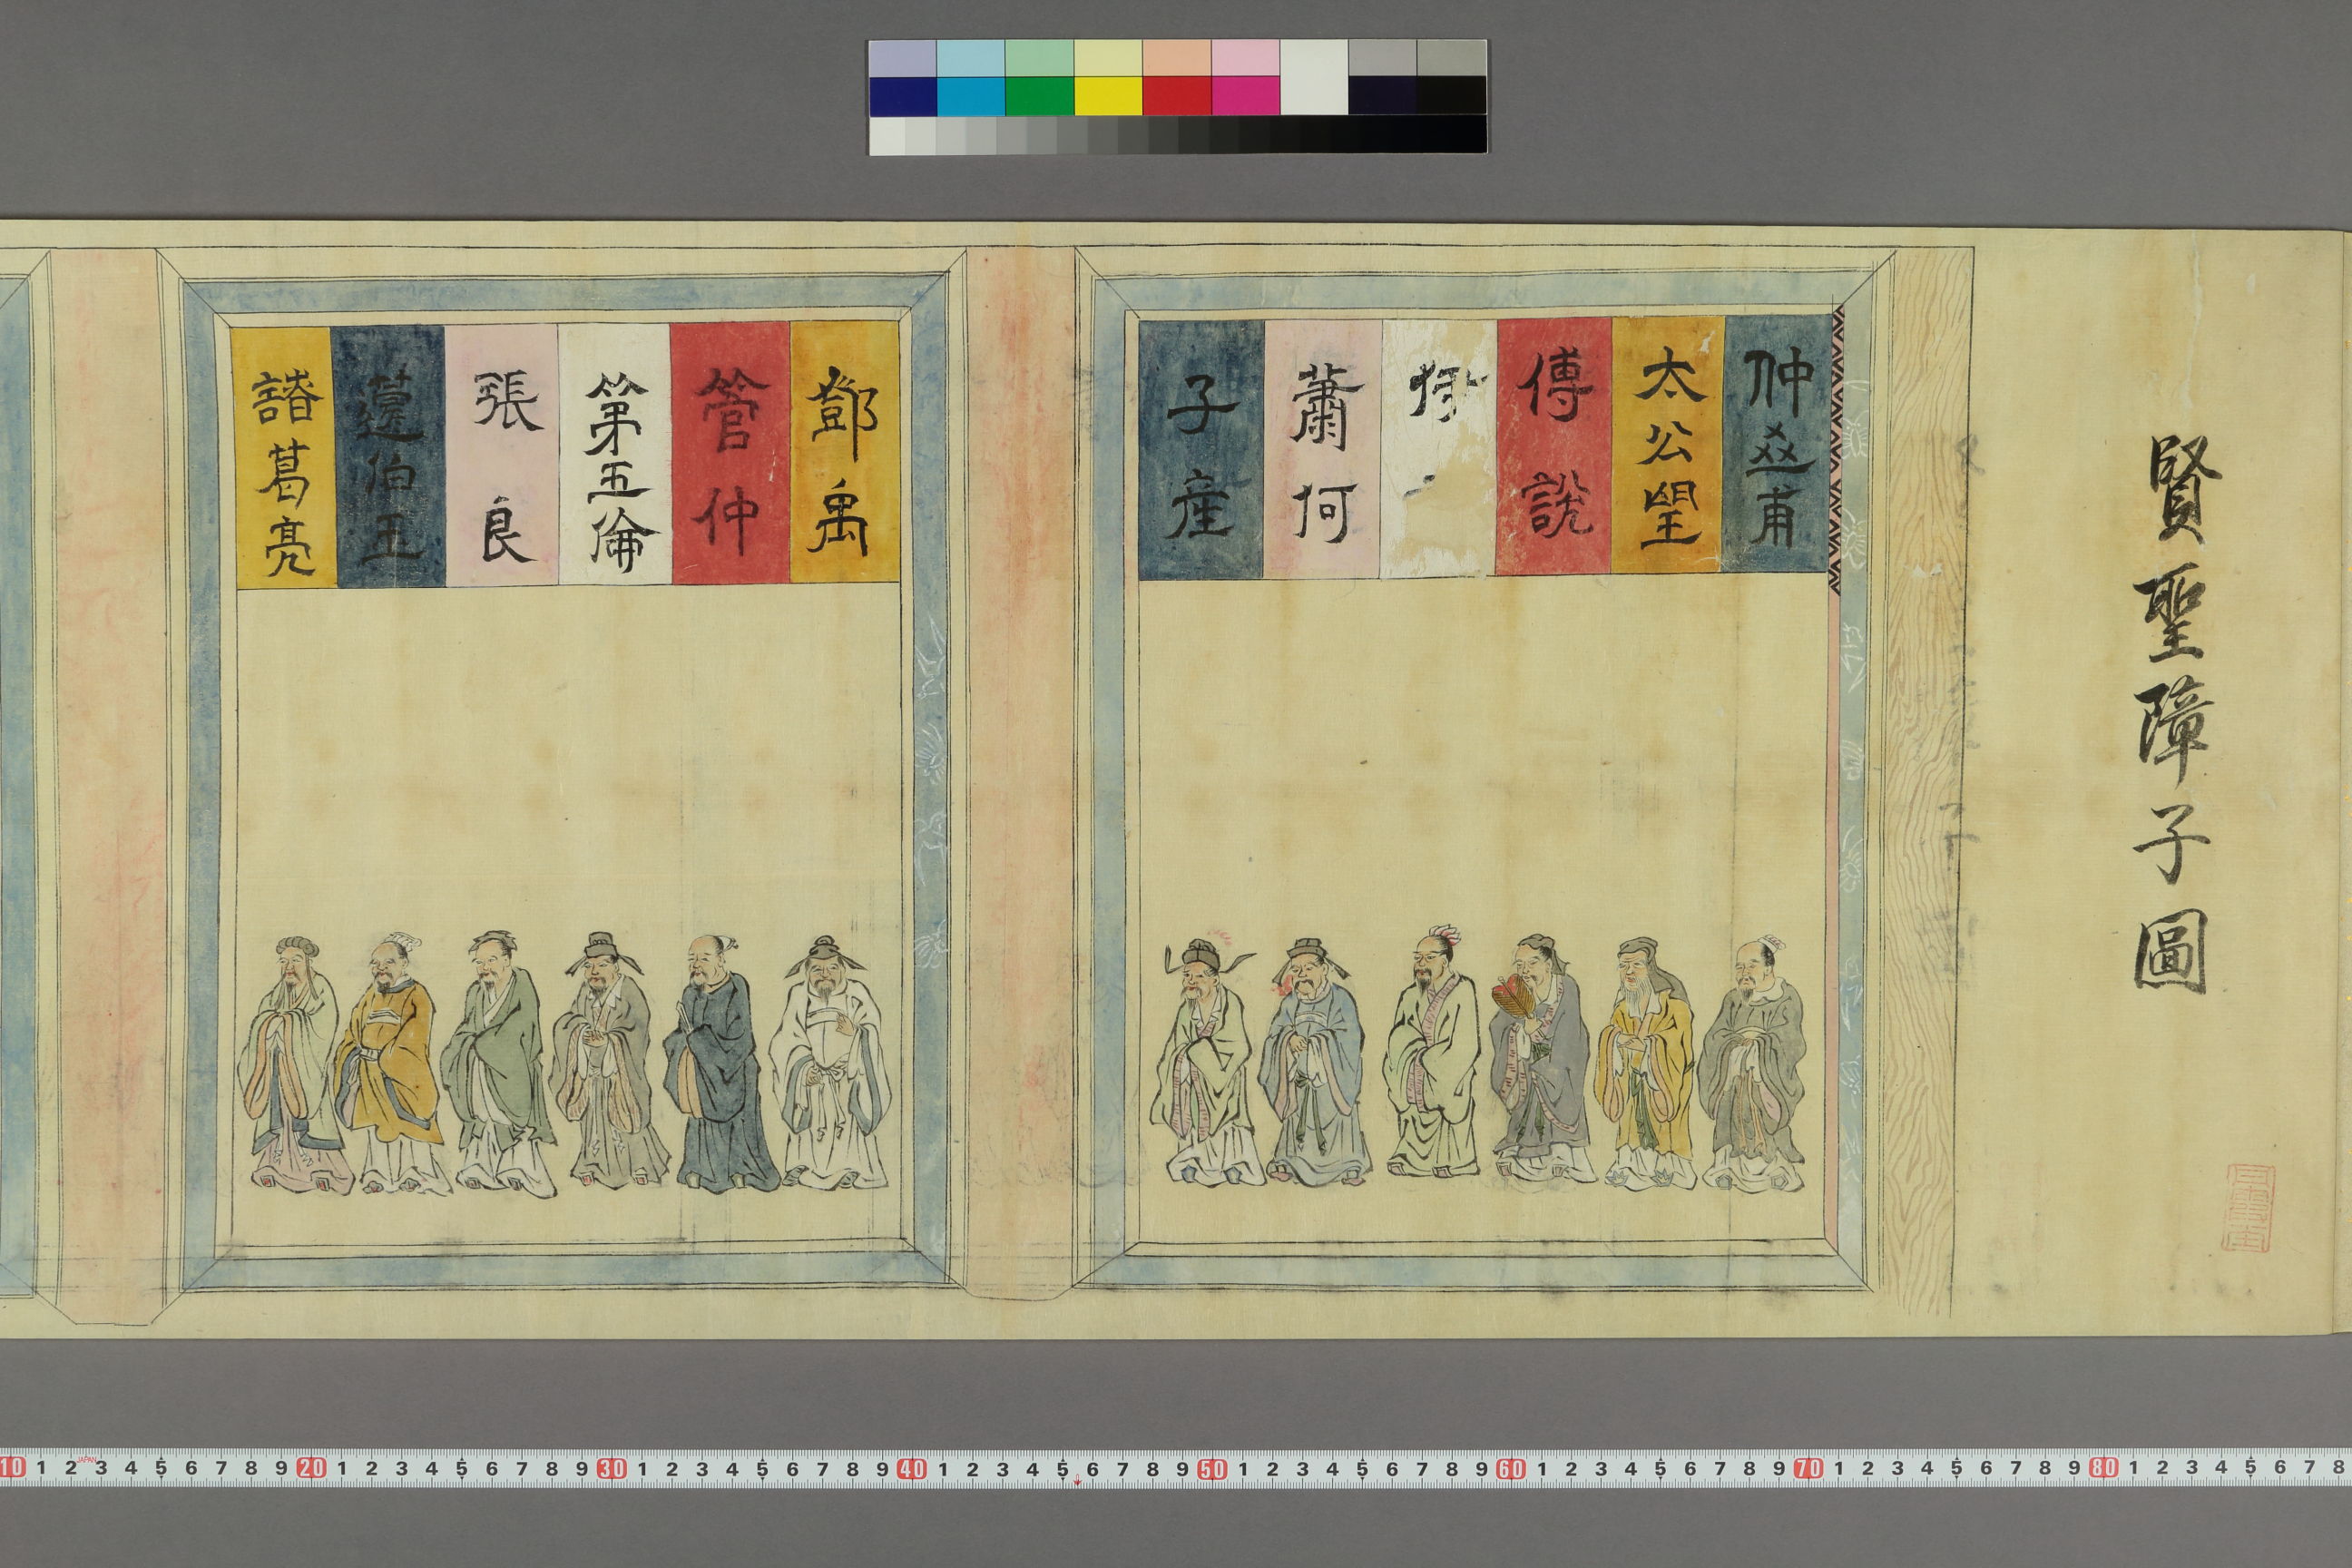 賢聖障子圖
仲山甫
太公望
傅說
蕭何
子産
鄧禹
管仲
第五倫
張良
蘧伯玉
諸葛亮
10 1 2 3 4 5 6 7 8 9 20 1 2 3 4 5 6 7 8 9 30 1 2 3 4 5 6 7 8 9 40 1 2 3 4 5 6 7 8 9 50 1 2 3 4 5 6 7 8 9 60 1 2 3 4 5 6 7 8 9 70 1 2 3 4 5 6 7 8 9 80 1 2 3 4 5 6 7 8
JAPAN